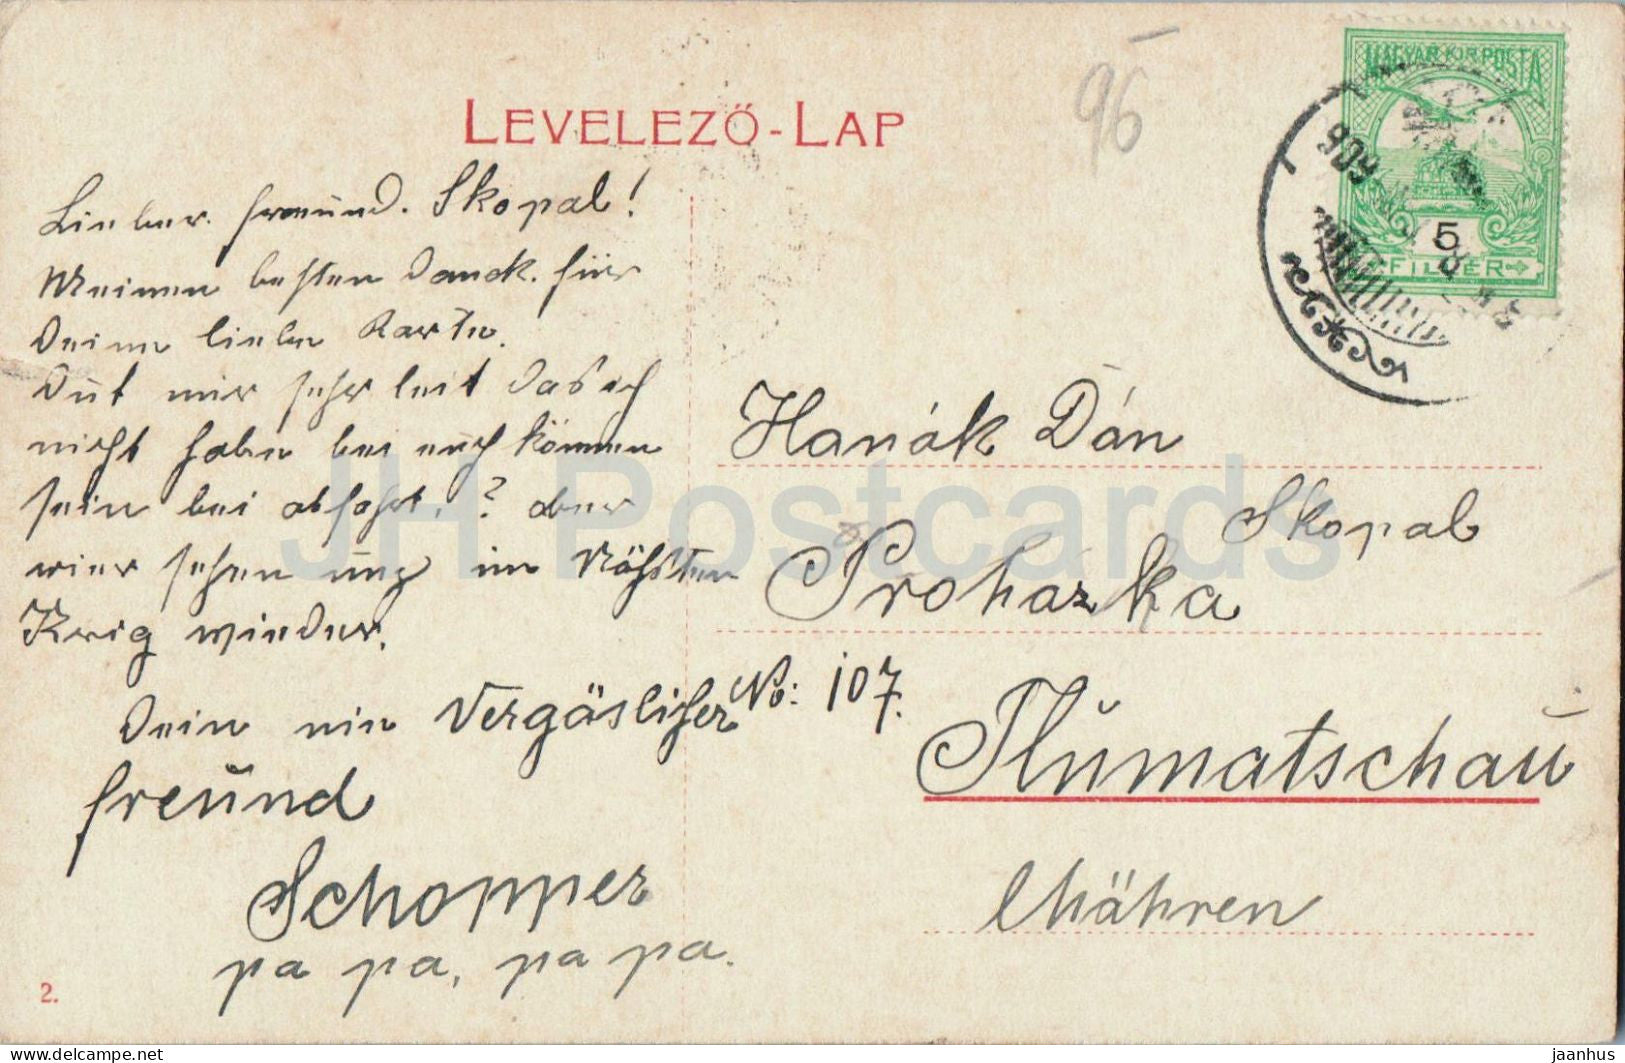 LEVELEZŐ-LAP
96
MAGYAR KIR. POSTA
909
5
FILLÉR
Lieber freund. Skopal!
Meinen besten Danck. für
Deine liebe Karte.
Dut mir sehr leit Das ich
nicht habe bei euch können
sein bei abfahrt. ? aber
wier sehen unz im Nähsten
Krig wieder.
Dein nie Vergäslicher
freund
Schopper
pa pa, pa pa.
Hanák Dán
Skopal
Prohazka
No: 107.
Tlumatschau
Mähren
2.
JH Postcards
jaanhus @ delcampe.net